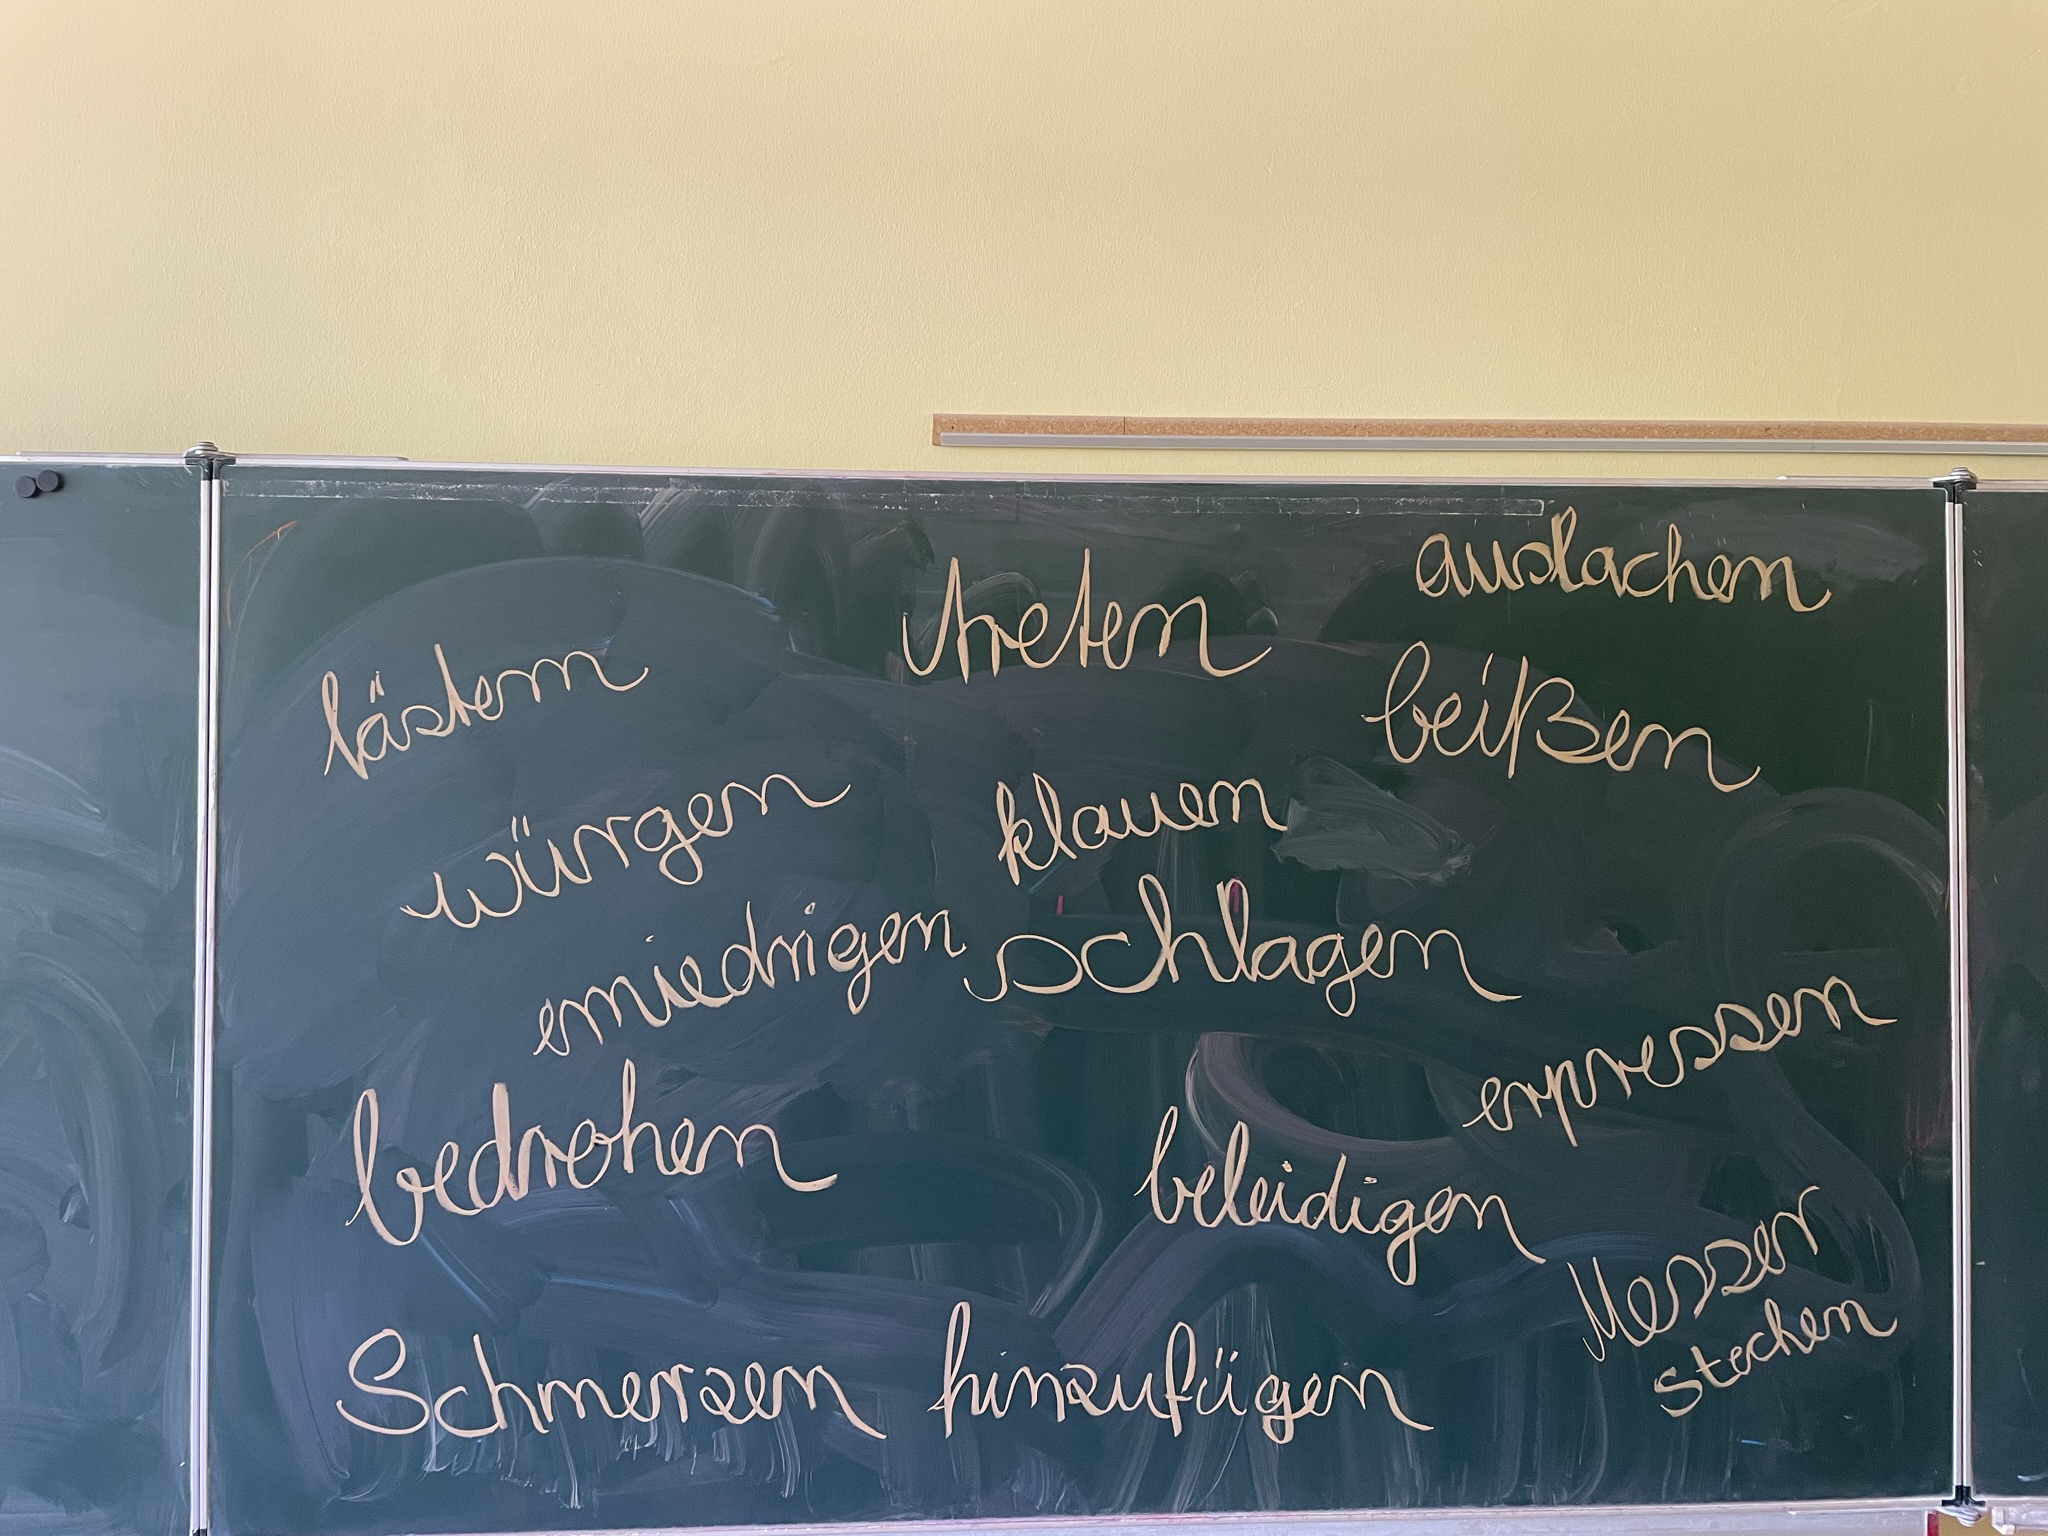 auslachen
treten
lästern
beißen
würgen
klauen
erniedrigen
schlagen
erpressen
bedrohen
beleidigen
Messer
stechen
Schmerzen hinzufügen